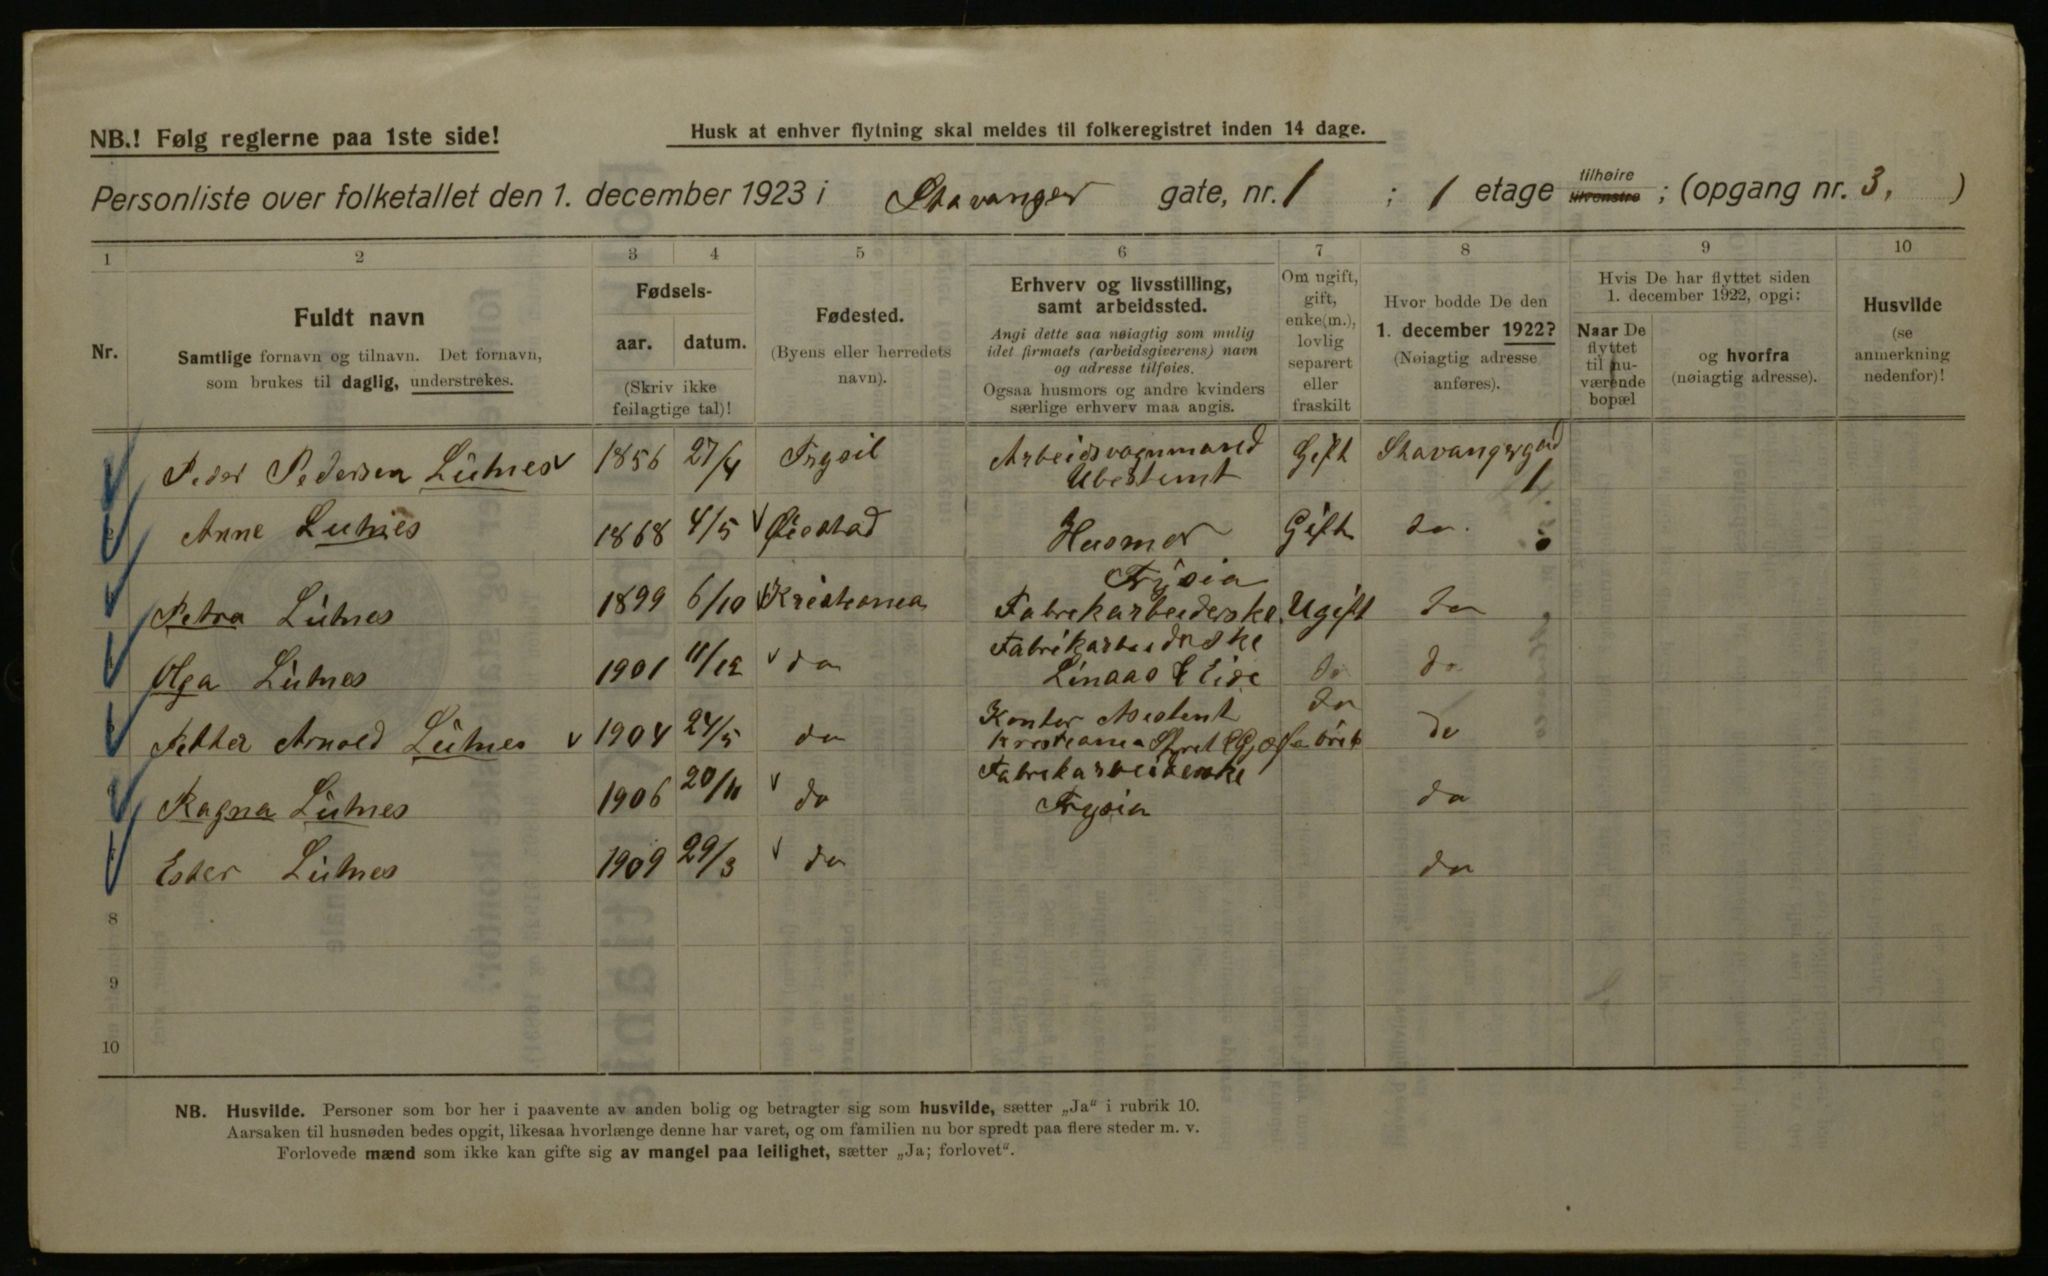 NB.! Følg reglerne paa 1ste side!
Husk at enhver flytning skal meldes til folkeregistret inden 14 dage.
Personliste over folketallet den 1. december 1923 i Stavanger gate, nr. 1 ; 1 etage tilhøire tilvenstre ; (opgang nr. 3, )
1 2 3 4 5 6 7 8 9 10
Nr.
Fuldt navn
Samtlige fornavn og tilnavn. Det fornavn,
som brukes til daglig, understrekes.
Fødsels-
aar. datum.
(Skriv ikke
feilagtige tal)!
Fødested.
(Byens eller herredets
navn).
Erhverv og livsstilling,
samt arbeidssted.
Angi dette saa nøiagtig som mulig
idet firmaets (arbeidsgiverens) navn
og adresse tilføies.
Ogsaa husmors og andre kvinders
særlige erhverv maa angis.
Om ugift,
gift,
enke(m.),
lovlig
separert
eller
fraskilt
Hvor bodde De den
1. december 1922?
(Nøiagtig adresse
anføres).
Hvis De har flyttet siden
1. december 1922, opgi:
Naar De
flyttet
til nu-
værende
bopæl
og hvorfra
(nøiagtig adresse).
Husvilde
(se
anmerkning
nedenfor)!
Peder Pedersen Lutnes 1856 27/4 Trysil Arbeidsvognmand Ubestemt Gift Stavangergad 1
Anne Lutnes 1868 4/5 Øiestad Husmor Gift do.
Petra Lutnes 1899 6/10 Kristiania Frysia Fabrekarbeiderske Ugift do
Olga Lutnes 1901 11/12 do Fabrikarbeiderske Linaae & Eide do do
Petter Arnold Lutnes 1904 24/5 do Kontor Asistent Kristiania Spret & Gjæfabrik do do
Ragna Lutnes 1906 20/11 do Fabrekarbeiderske Frysia do
Ester Lutnes 1909 29/3 do do
8
9
10
NB. Husvilde. Personer som bor her i paavente av anden bolig og betragter sig som husvilde, sætter „Ja“ i rubrik 10.
Aarsaken til husnøden bedes opgit, likesaa hvorlænge denne har varet, og om familien nu bor spredt paa flere steder m. v.
Forlovede mænd som ikke kan gifte sig av mangel paa leilighet, sætter „Ja; forlovet“.